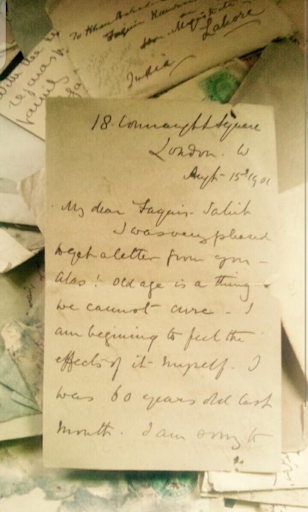 To Khan
Lahore
India
18. Connaught Square
London. W
Augt. 15th 1901
My dear Faquir Sahib
I was very pleased
to get a letter from you -
alas! old age is a thing
we cannot cure. I
am begining to feel the
effects of it myself. I
was 60 years old last
month. I am sorry to